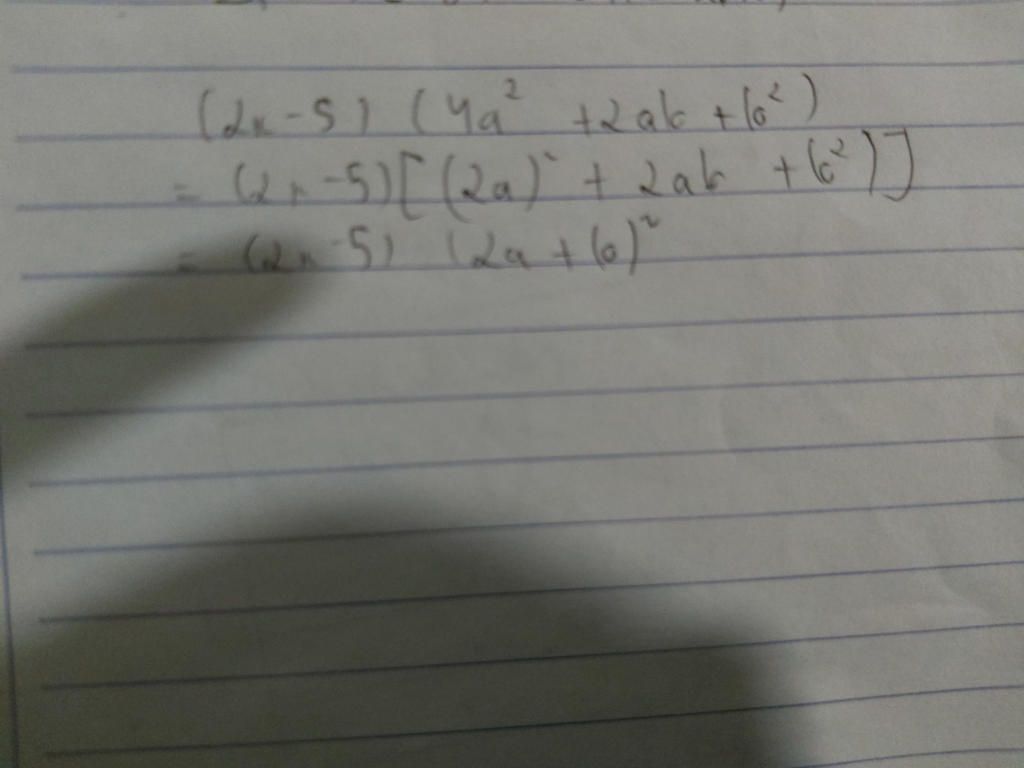 (2x-5) (4a² +2ab +b²)
= (2x-5)[(2a)² + 2ab +b²)]
= (2x-5) (2a+b)²